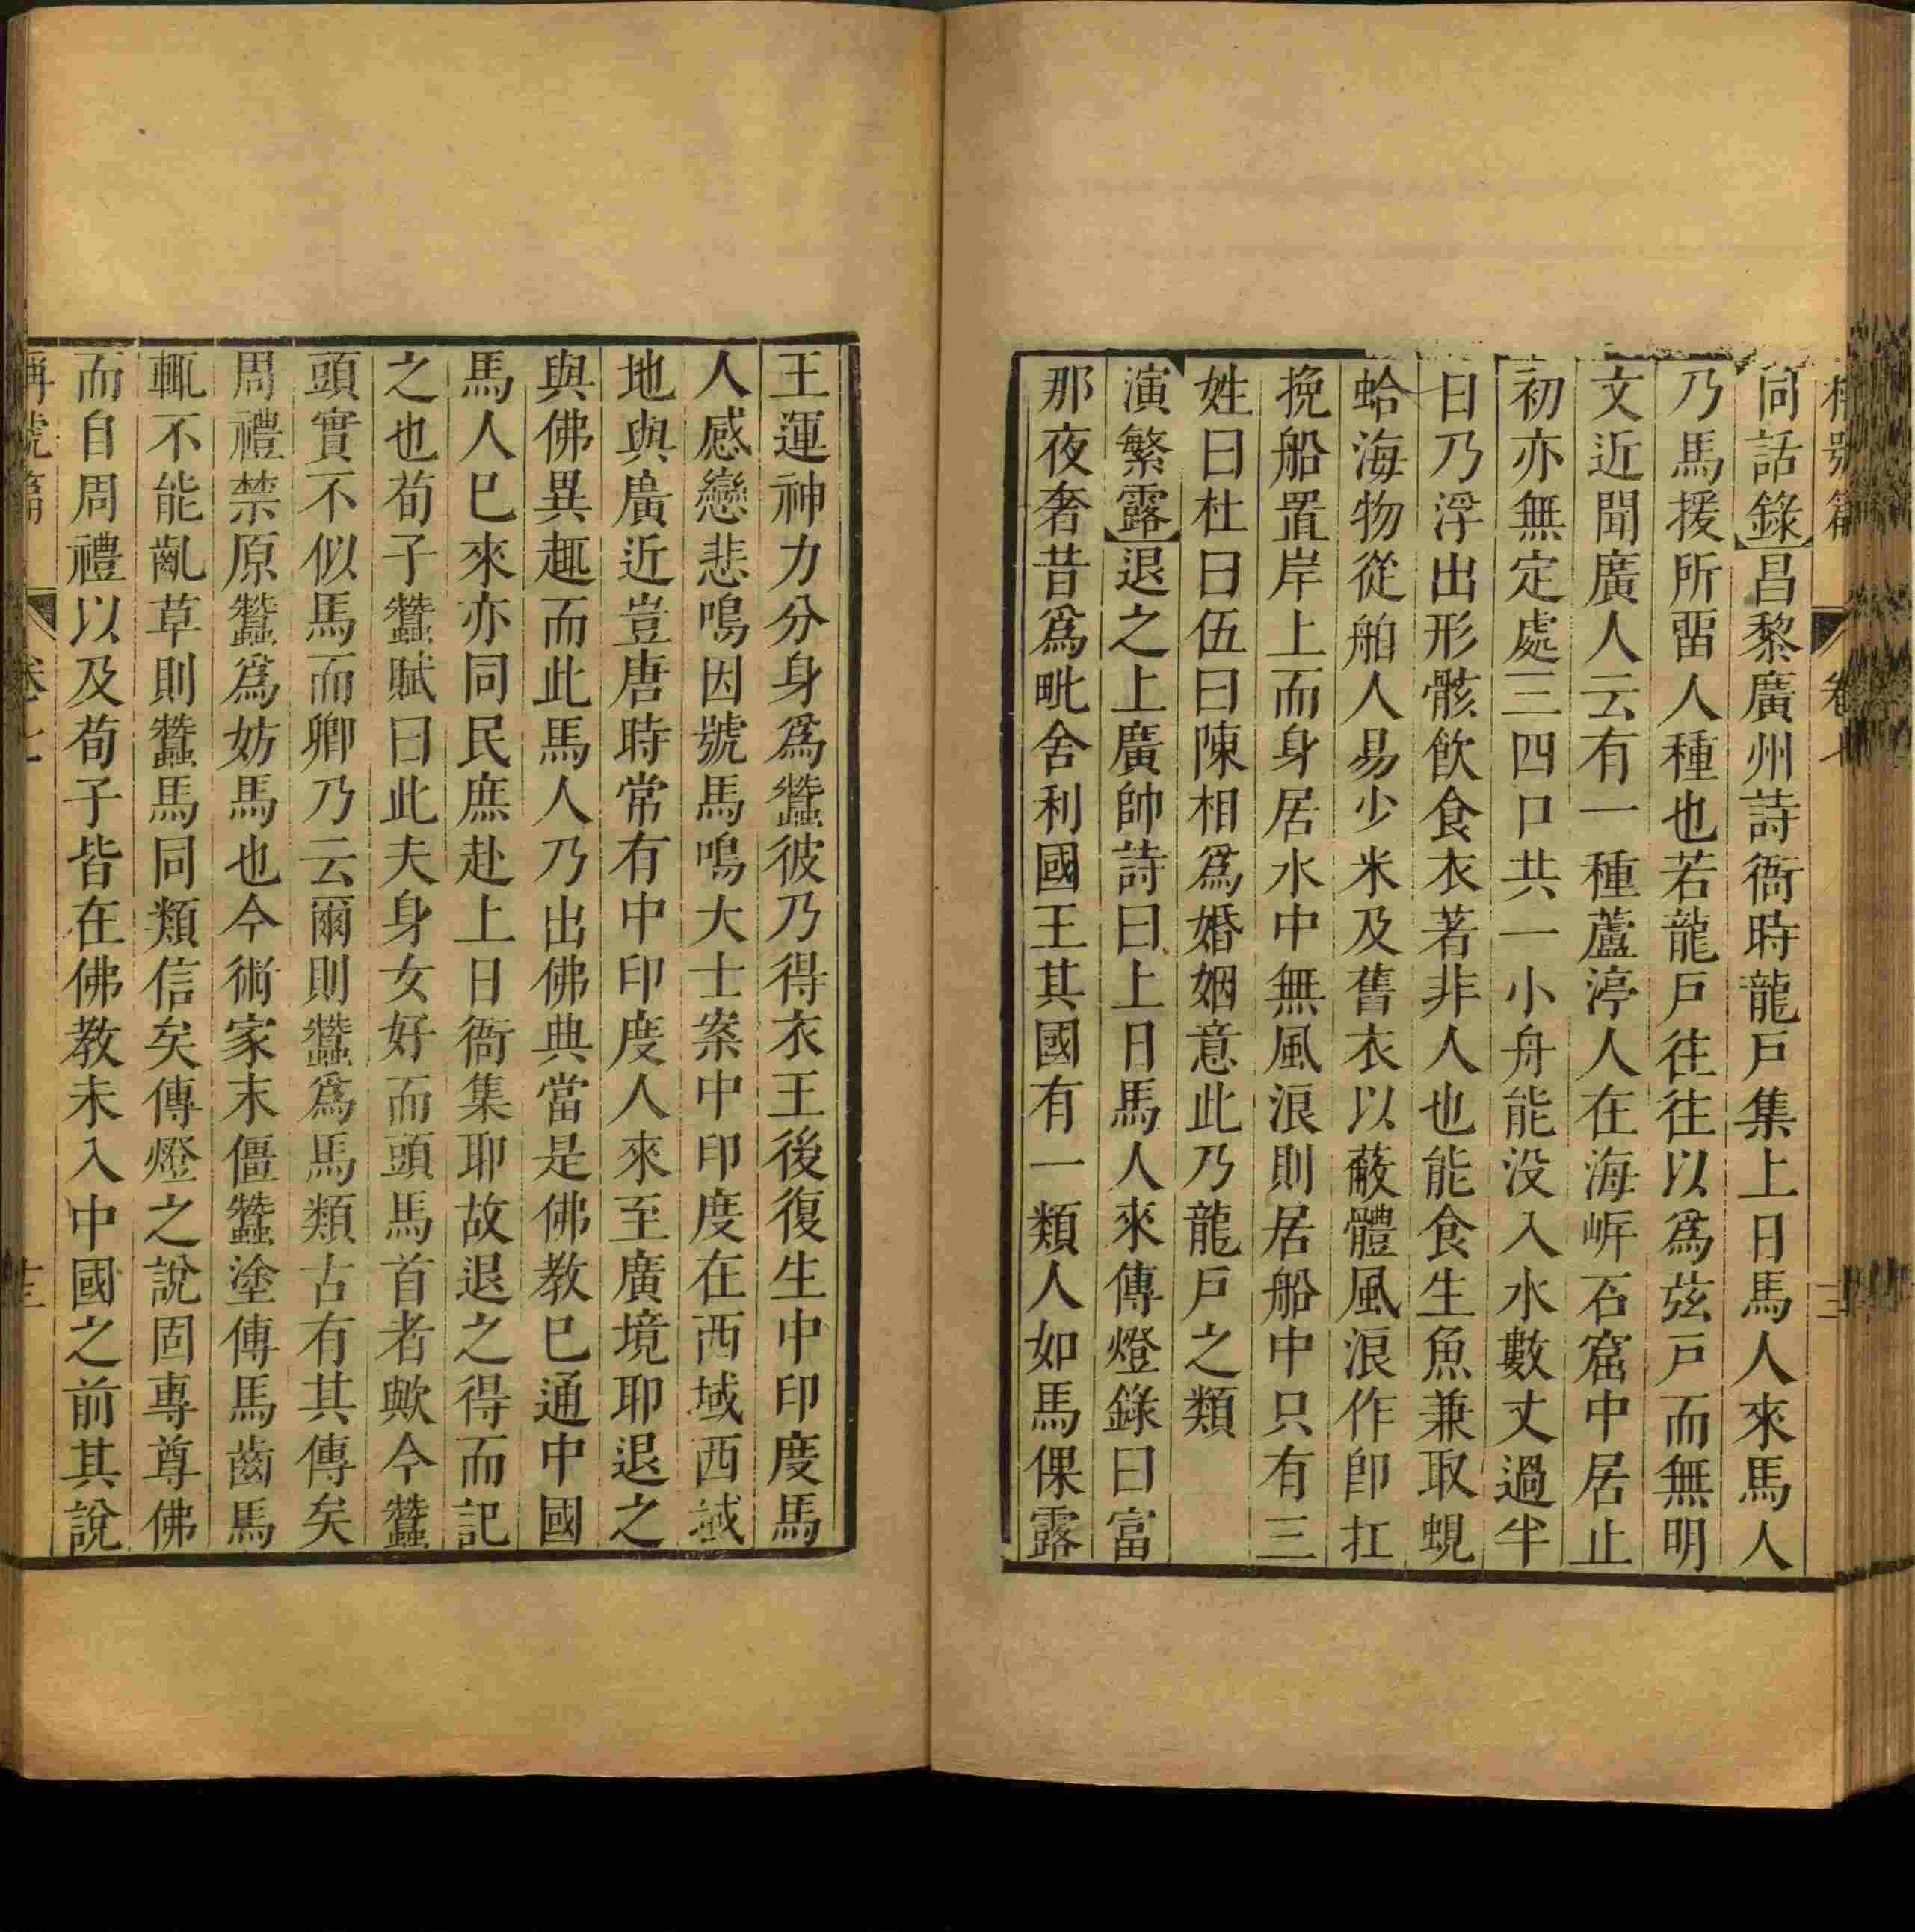 稱號篇 卷七
同話錄昌黎廣州詩衙時龍戶集上日馬人來馬人
乃馬援所畱人種也若龍戶往往以爲蜑戶而無明
文近聞廣人云有一種蘆渟人在海岸石窟中居止
初亦無定處三四口共一小舟能没入水數丈過半
日乃浮出形骸飲食衣著非人也能食生魚兼取蜆
蛤海物從舶人易少米及舊衣以蔽體風浪作卽扛
挽船置岸上而身居水中無風浪則居船中只有三
姓曰杜曰伍曰陳相爲婚姻意此乃龍戶之類
演繁露退之上廣帥詩曰上日馬人來傳燈錄曰富
那夜奢昔爲毗舍利國王其國有一類人如馬倮露
王運神力分身爲蠶彼乃得衣王後復生中印度馬
人感戀悲鳴因號馬鳴大士案中印度在西域西域
地與廣近豈唐時常有中印度人來至廣境耶退之
與佛異趣而此馬人乃出佛典當是佛教已通中國
馬人已來亦同民庶赴上日衙集耶故退之得而記
之也荀子蠶賦曰此夫身女好而頭馬首者歟今蠶
頭實不似馬而卿乃云爾則蠶爲馬類古有其傳矣
周禮禁原蠶爲妨馬也今術家末僵蠶塗傅馬齒馬
輒不能齕草則蠶馬同類信矣傳燈之說固專尊佛
而自周禮以及荀子皆在佛教未入中國之前其說
稱號篇 卷七